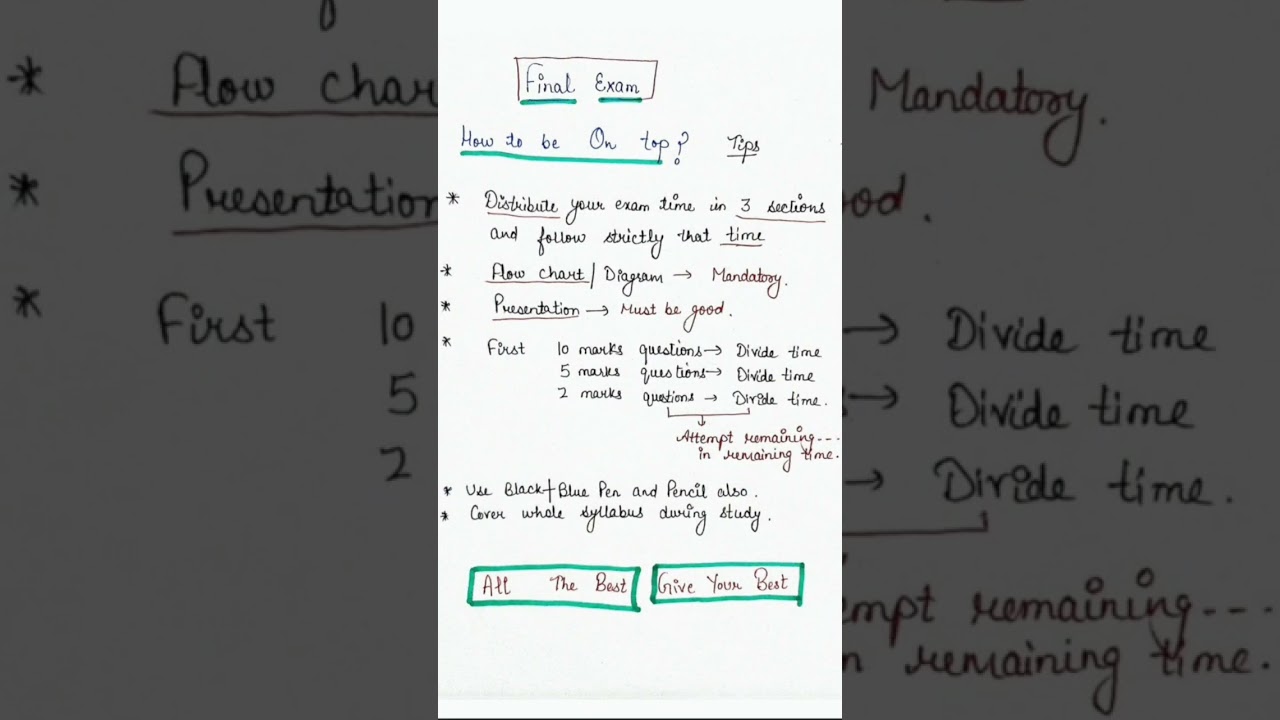 Final Exam
How to be On top? Tips
* Distribute your exam time in 3 sections
and follow strictly that time
* Flow chart / Diagram → Mandatory.
* Presentation → Must be good.
* First 10 marks questions → Divide time
5 marks questions → Divide time
2 marks questions → Divide time.
Attempt remaining---
in remaining time.
* Use Black+Blue Pen and Pencil also.
* Cover whole syllabus during study.
All The Best Give Your Best